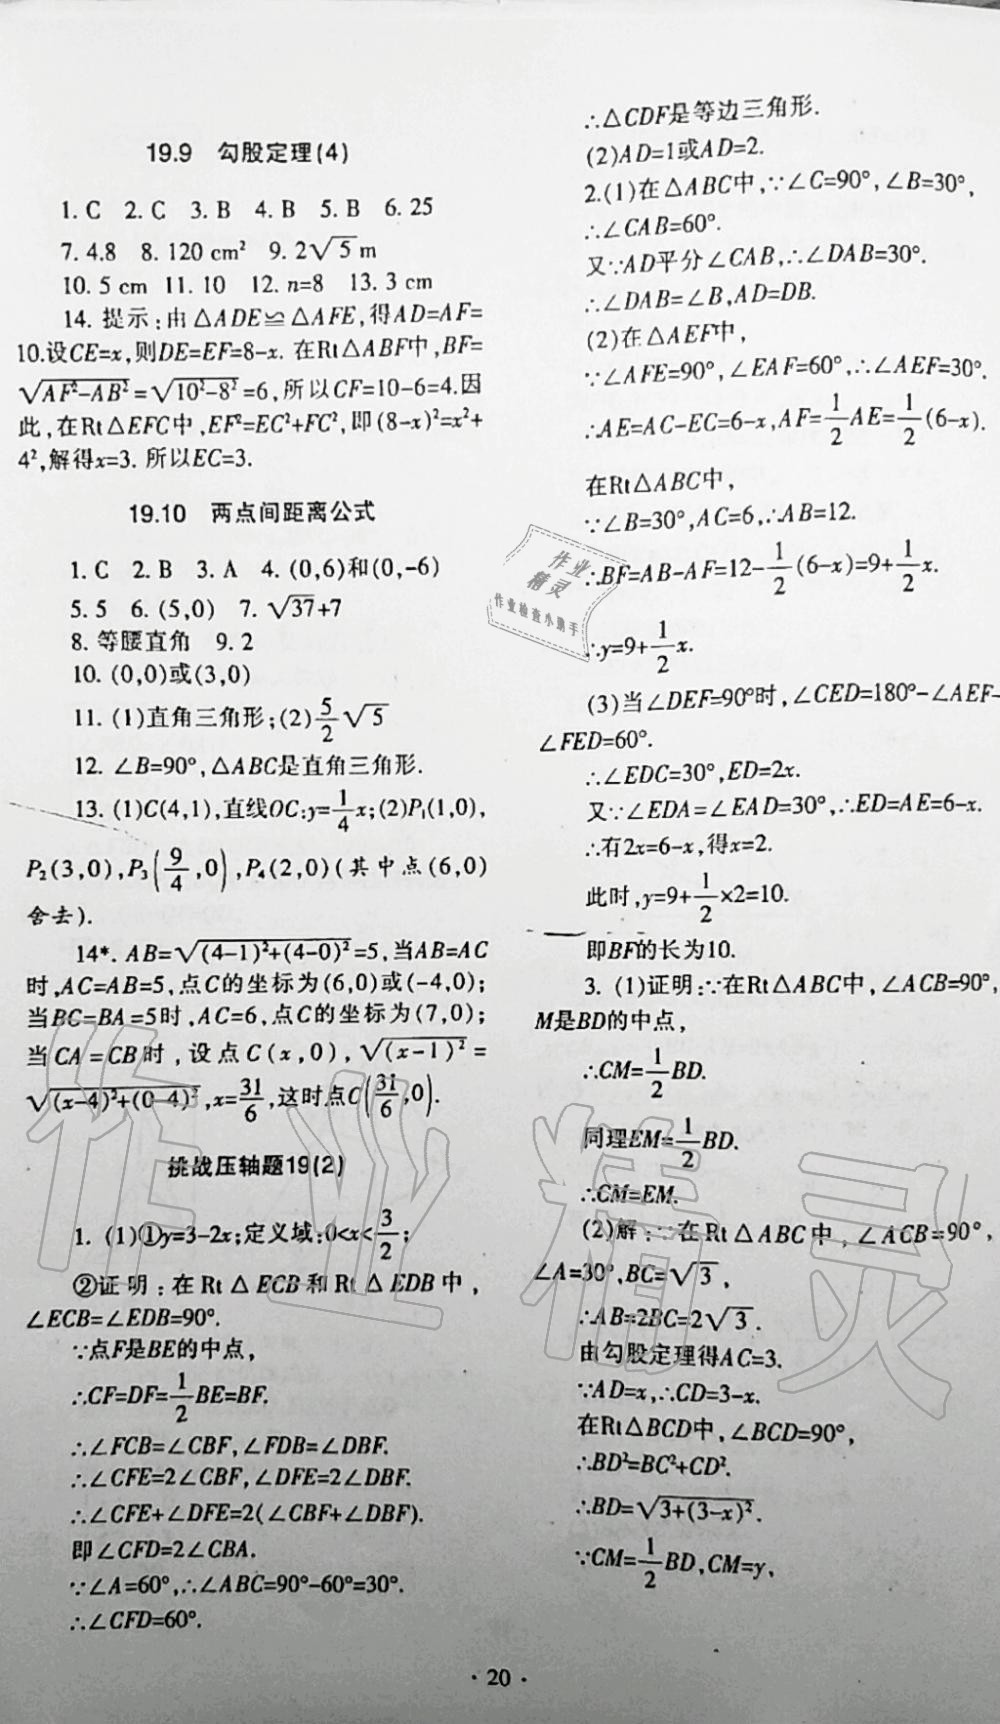 19.9 勾股定理(4)
1. C 2. C 3. B 4. B 5. B 6. 25
7. 4.8 8. 120 cm² 9. 2√5 m
10. 5 cm 11. 10 12. n=8 13. 3 cm
14. 提示:由△ADE≌△AFE,得AD=AF=
10.设CE=x,则DE=EF=8-x. 在Rt△ABF中,BF=
√(AF²-AB²)=√(10²-8²)=6,所以CF=10-6=4.因
此,在Rt△EFC中,EF²=EC²+FC²,即(8-x)²=x²+
4²,解得x=3. 所以EC=3.
19.10 两点间距离公式
1. C 2. B 3. A 4. (0,6)和(0,-6)
5. 5 6. (5,0) 7. √37+7
8. 等腰直角 9. 2
10. (0,0)或(3,0)
11. (1)直角三角形;(2)5/2√5
12. ∠B=90°,△ABC是直角三角形.
13. (1)C(4,1),直线OC:y=1/4x;(2)P₁(1,0),
P₂(3,0),P₃(9/4,0),P₄(2,0)(其中点(6,0)
舍去).
14*. AB=√((4-1)²+(4-0)²)=5,当AB=AC
时,AC=AB=5,点C的坐标为(6,0)或(-4,0);
当BC=BA=5时,AC=6,点C的坐标为(7,0);
当CA=CB时,设点C(x,0),√((x-1)²)=
√((x-4)²+(0-4)²),x=31/6,这时点C(31/6,0).
挑战压轴题19(2)
1. (1)①y=3-2x;定义域:0<x<3/2;
②证明:在Rt△ECB和Rt△EDB中,
∠ECB=∠EDB=90°.
∵点F是BE的中点,
∴CF=DF=1/2BE=BF.
∴∠FCB=∠CBF,∠FDB=∠DBF.
∴∠CFE=2∠CBF,∠DFE=2∠DBF.
∴∠CFE+∠DFE=2(∠CBF+∠DBF).
即∠CFD=2∠CBA.
∵∠A=60°,∴∠ABC=90°-60°=30°.
∴∠CFD=60°.
∴△CDF是等边三角形.
(2)AD=1或AD=2.
2.(1)在△ABC中,∵∠C=90°,∠B=30°,
∴∠CAB=60°.
又∵AD平分∠CAB,∴∠DAB=30°.
∴∠DAB=∠B,AD=DB.
(2)在△AEF中,
∵∠AFE=90°,∠EAF=60°,∴∠AEF=30°.
∴AE=AC-EC=6-x,AF=1/2AE=1/2(6-x).
在Rt△ABC中,
∵∠B=30°,AC=6,∴AB=12.
∴BF=AB-AF=12-1/2(6-x)=9+1/2x.
∴y=9+1/2x.
(3)当∠DEF=90°时,∠CED=180°-∠AEF-
∠FED=60°.
∴∠EDC=30°,ED=2x.
又∵∠EDA=∠EAD=30°,∴ED=AE=6-x.
∴有2x=6-x,得x=2.
此时,y=9+1/2×2=10.
即BF的长为10.
3. (1)证明:∵在Rt△ABC中,∠ACB=90°,
M是BD的中点,
∴CM=1/2BD.
同理EM=1/2BD.
∴CM=EM.
(2)解:∵在Rt△ABC中,∠ACB=90°,
∠A=30°,BC=√3,
∴AB=2BC=2√3.
由勾股定理得AC=3.
∵AD=x,∴CD=3-x.
在Rt△BCD中,∠BCD=90°,
∴BD²=BC²+CD².
∴BD=√(3+(3-x)²).
∵CM=1/2BD,CM=y,
· 20 ·
作业
精灵
作业检查小助手
作业精灵